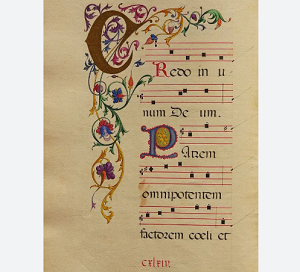 CRedo in u
num De um.
PAtrem
omnipotentem
factorem cœli et
cxlxiv.